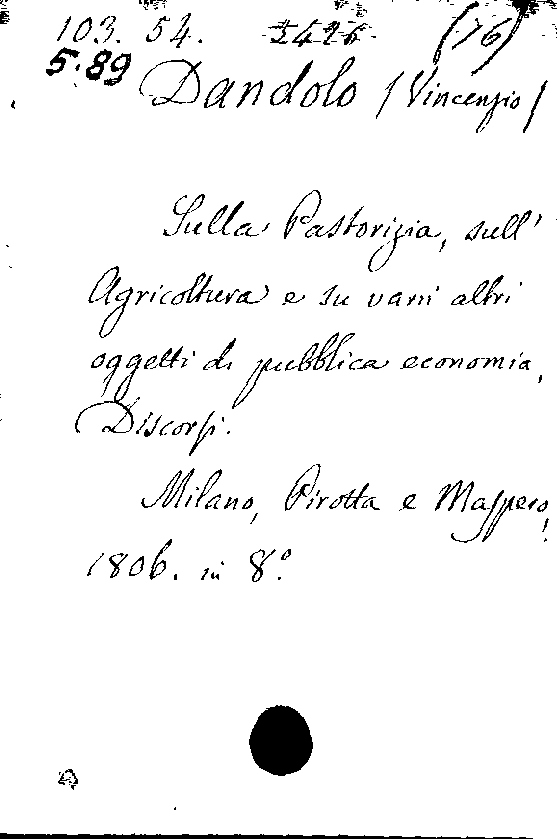 103. 54. 2426 (76)
5.89
Dandolo (Vincenzio)
Sulla Pastorizia, sull'
Agricoltura e su varii altri
oggetti di pubblica economia,
Discorsi.
Milano, Pirotta e Maspero,
1806. in 8.º